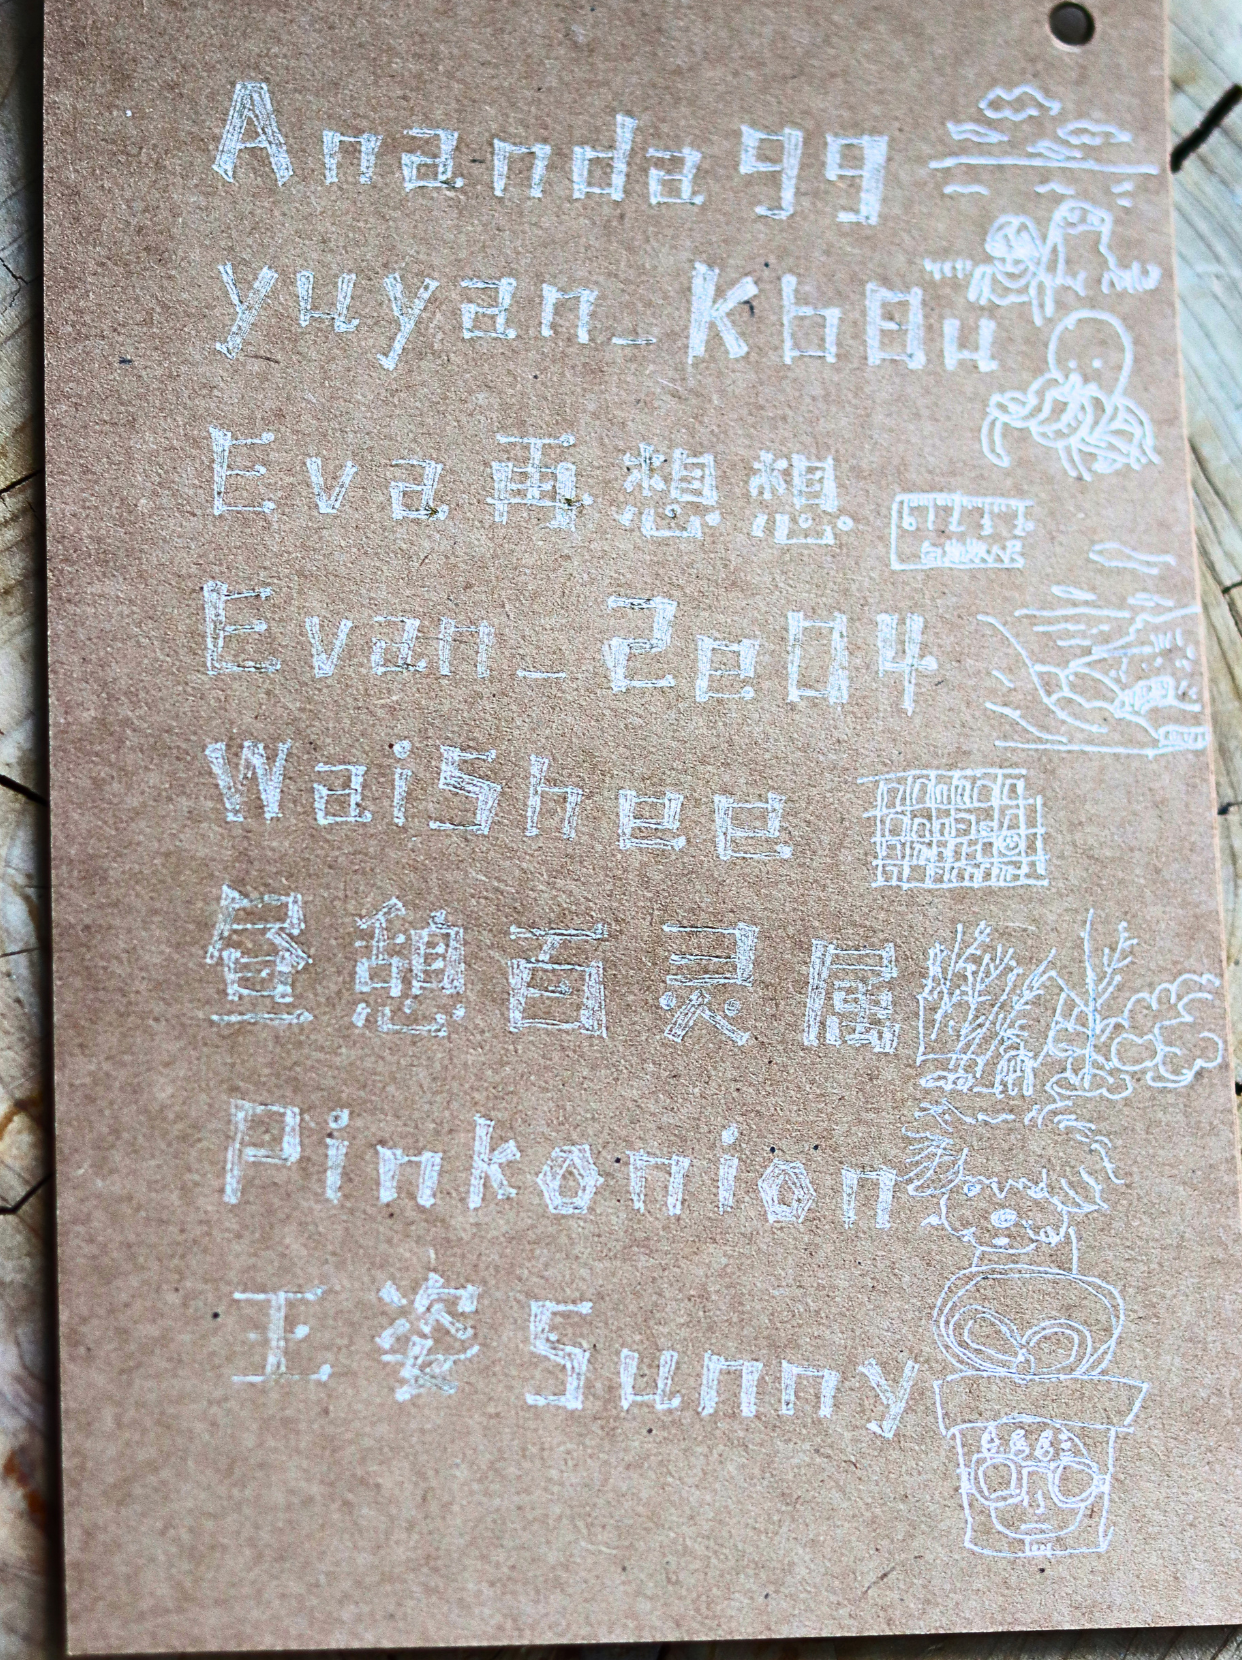 Ananda99
yuyan_Kb0u
Eva再想想
Evan_2e04
WaiShee
昼憩百灵属
Pinkonion
王姿Sunny